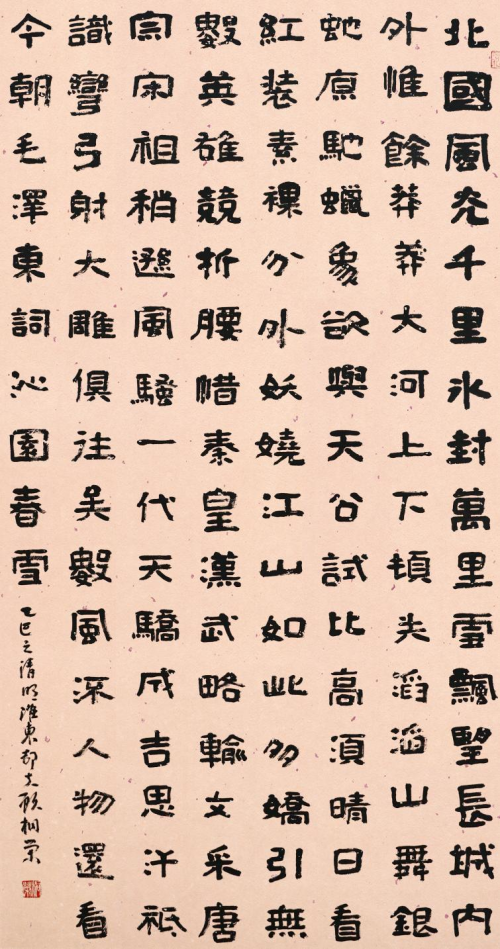 北國風光千里冰封萬里雪飄望長城内
外惟餘莽莽大河上下頓失滔滔山舞銀
蛇原馳蠟象欲與天公試比高須晴日看
紅裝素裸分外妖嬈江山如此多嬌引無
數英雄競折腰惜秦皇漢武略輸文采唐
宗宋祖稍遜風騷一代天驕成吉思汗祗
識彎弓射大雕俱往矣數風流人物還看
今朝毛澤東詞沁園春雪
乙巳之清明淮東